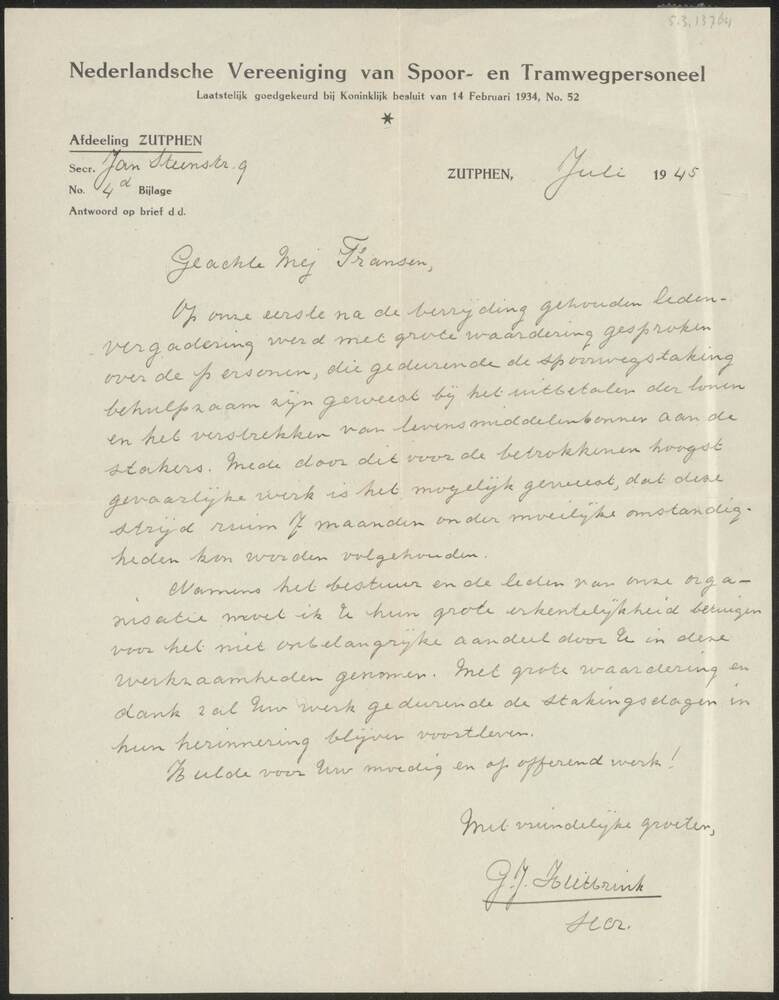 5.3.13764
Nederlandsche Vereeniging van Spoor- en Tramwegpersoneel
Laatstelijk goedgekeurd bij Koninklijk besluit van 14 Februari 1934, No. 52
*
Afdeeling ZUTPHEN
Secr. Jan Steenstr. 9
No. 4d Bijlage
Antwoord op brief d.d.
ZUTPHEN, Juli 1945
Geachte Mej Fransen,
Op onze eerste na de bevrijding gehouden leden-
vergadering werd met grote waardering gesproken
over de personen, die gedurende de spoorwegstaking
behulpzaam zijn geweest bij het uitbetalen der lonen
en het verstrekken van levensmiddelenbonnen aan de
stakers. Mede door dit voor de betrokkenen hoogst
gevaarlijke werk is het mogelijk geweest, dat deze
strijd ruim 7 maanden onder moeilijke omstandig-
heden kon worden volgehouden.
Namens het bestuur en de leden van onze orga-
nisatie moet ik U hun grote erkentelijkheid betuigen
voor het niet onbelangrijke aandeel door U in deze
werkzaamheden genomen. Met grote waardering en
dank zal Uw werk gedurende de stakingsdagen in
hun herinnering blijven voortleven.
Hulde voor Uw moedig en op offerend werk!
Met vriendelijke groeten,
G.J.
Secr.